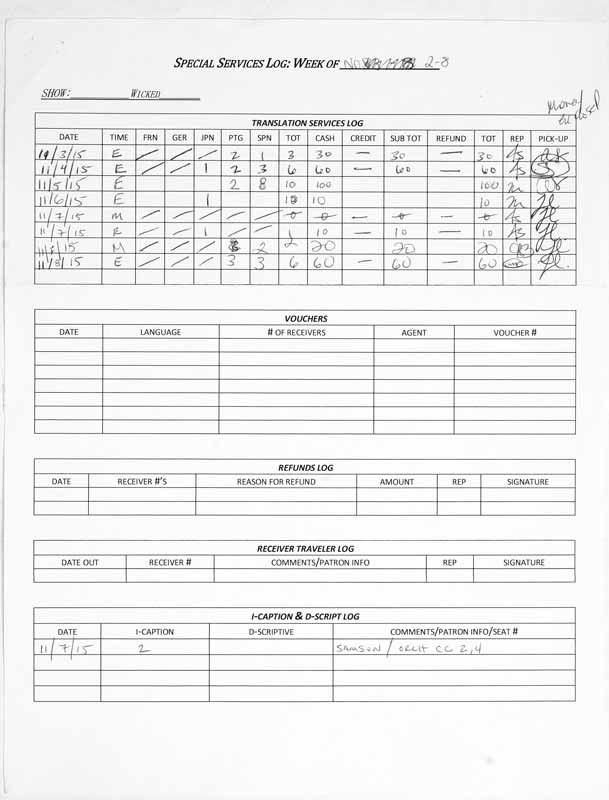 SPECIAL SERVICES LOG: WEEK OF 2-8
SHOW: WICKED
TRANSLATION SERVICES LOG
DATE TIME FRN GER JPN PTG SPN TOT CASH CREDIT SUB TOT REFUND TOT REP PICK-UP
11/3/15 E / / / 2 1 3 30 — 30 — 30 AS
11/4/15 E / / 1 2 3 6 60 — 60 — 60 AS
11/5/15 E 2 8 10 100 100 M
11/6/15 E 1 10 10 M
11/7/15 M / / / / / 0 0 — 0 — 0 AS
11/7/15 E / / 1 / / 1 10 — 10 — 10 AS
11/8/15 M / / / 2 2 20 20 20
11/8/15 E / / / 3 3 6 60 — 60 — 60
VOUCHERS
DATE LANGUAGE # OF RECEIVERS AGENT VOUCHER #
REFUNDS LOG
DATE RECEIVER #'S REASON FOR REFUND AMOUNT REP SIGNATURE
RECEIVER TRAVELER LOG
DATE OUT RECEIVER # COMMENTS/PATRON INFO REP SIGNATURE
I-CAPTION & D-SCRIPT LOG
DATE I-CAPTION D-SCRIPTIVE COMMENTS/PATRON INFO/SEAT #
11/7/15 2 SAMSON / ORCH CC 2,4